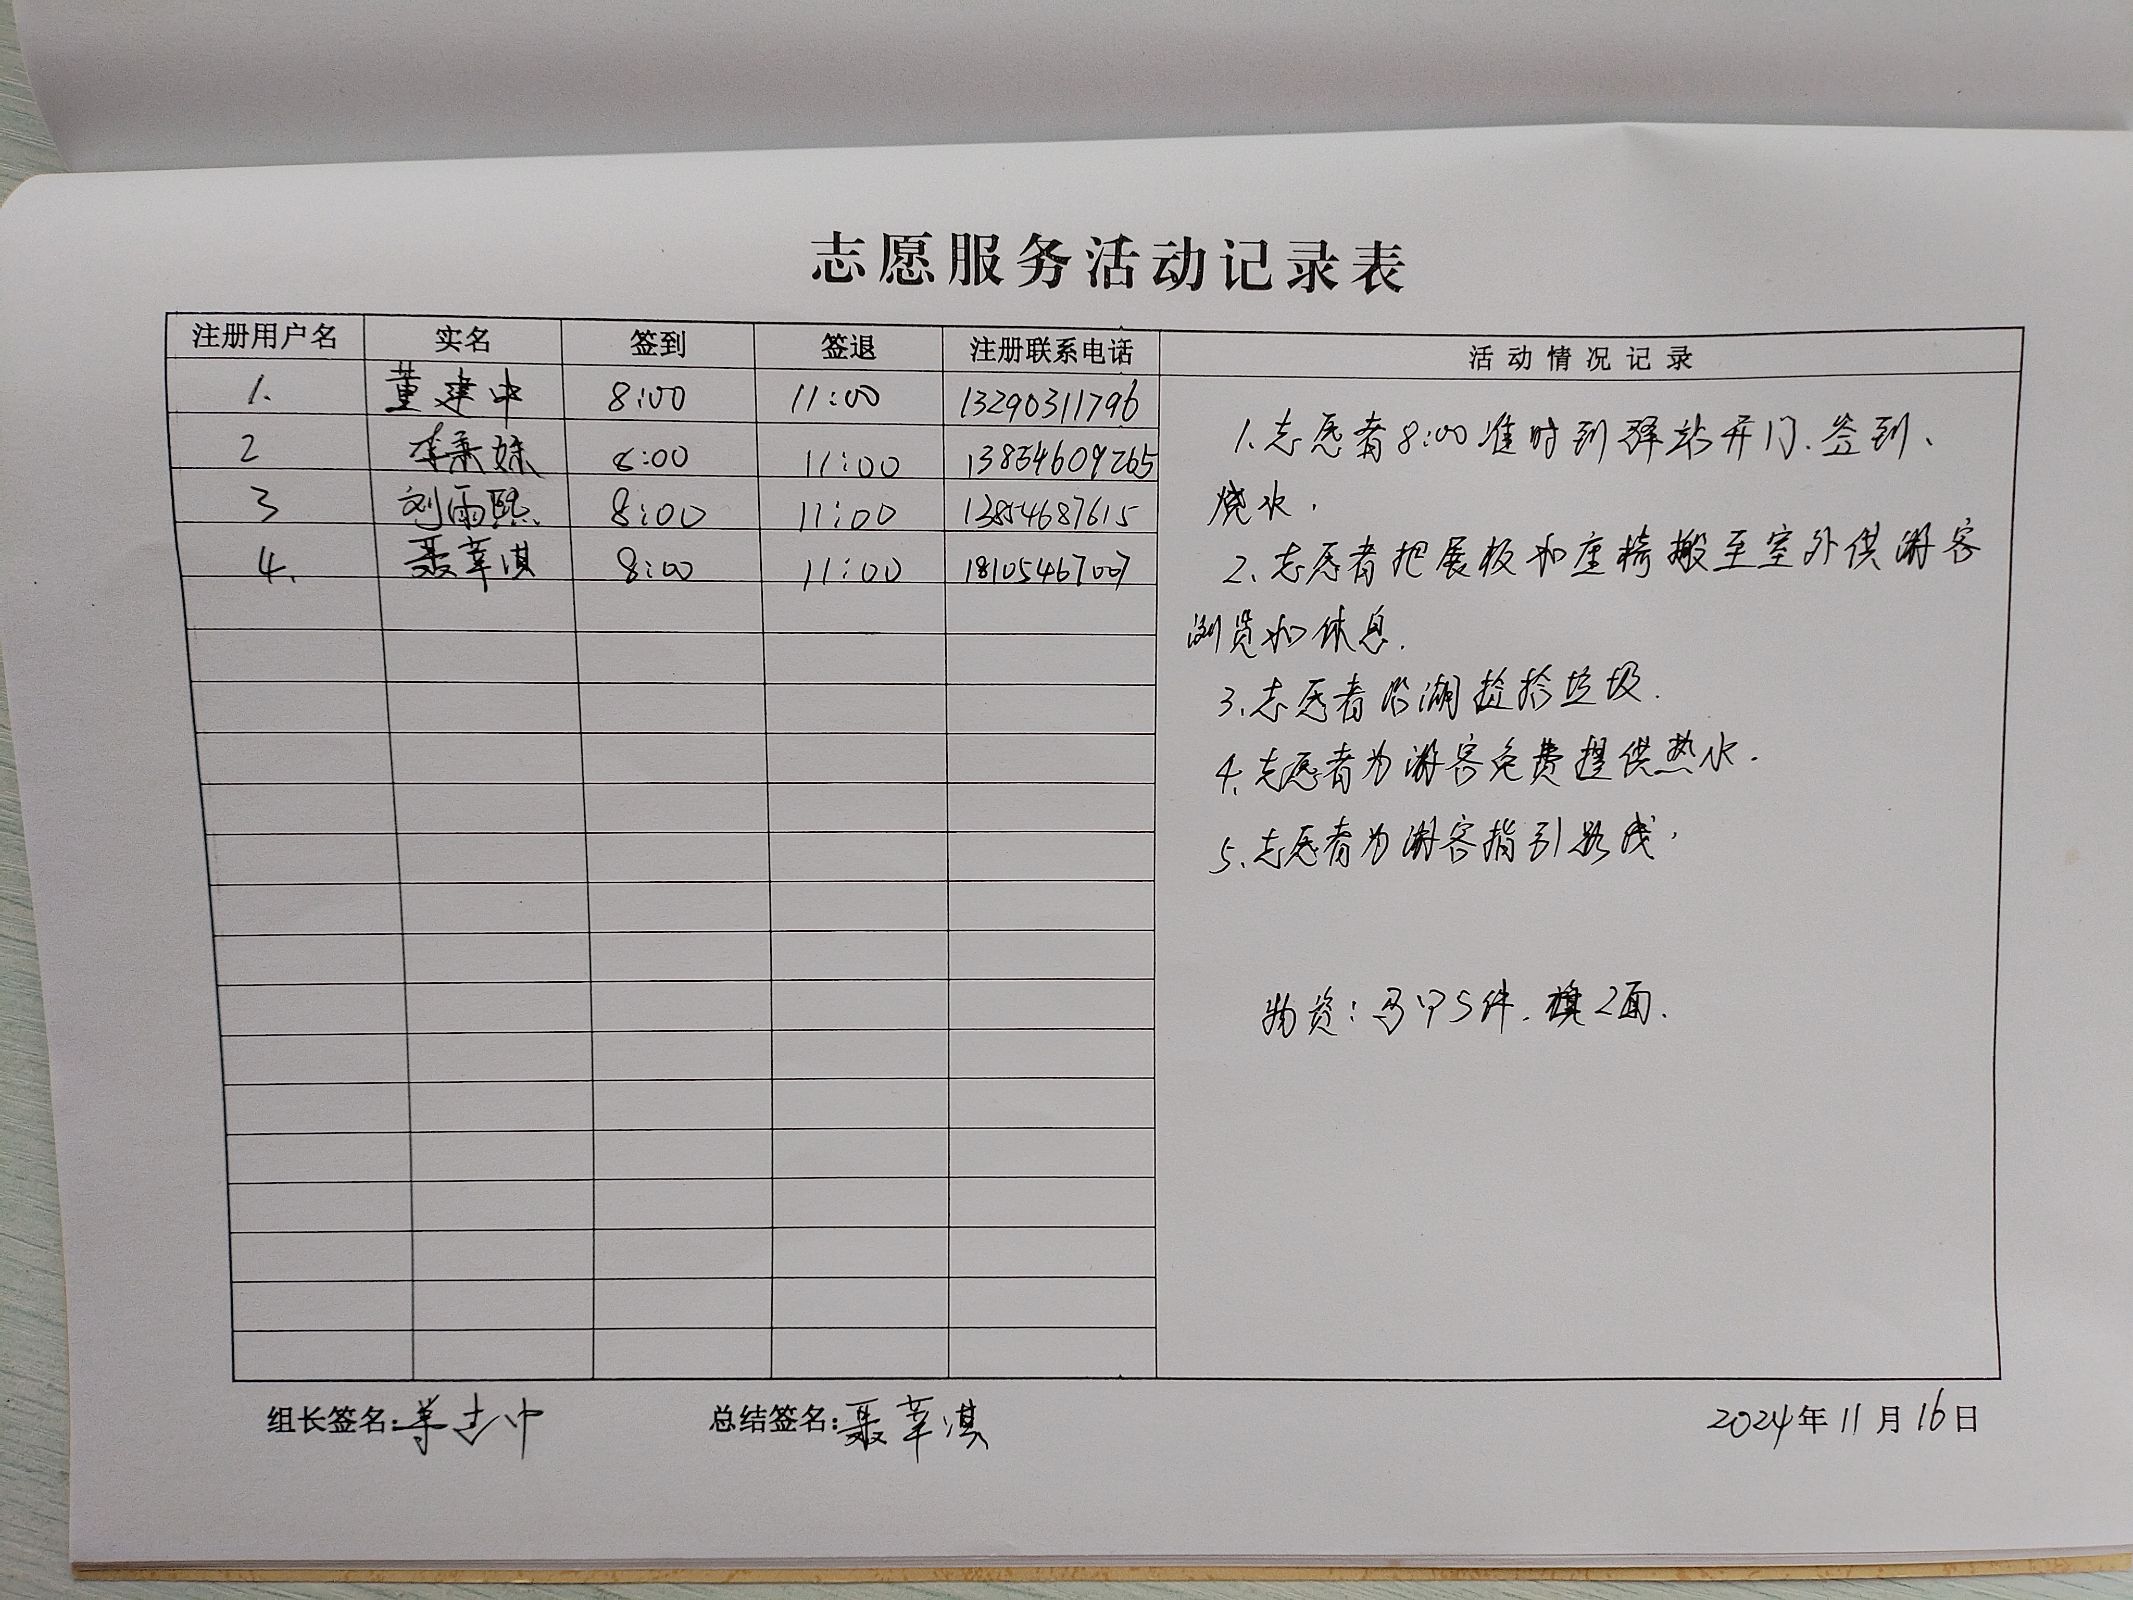 志愿服务活动记录表
注册用户名 实名 签到 签退 注册联系电话 活动情况记录
1. 董建中 8:00 11:00 13290311796
2 李秉妹 8:00 11:00 13854609265
3 刘雨熙 8:00 11:00 13854687615
4. 聂莘淇 8:00 11:00 18105467007
1、志愿者8:00准时到驿站开门、签到、
烧水.
2、志愿者把展板和座椅搬至室外供游客
浏览和休息.
3、志愿者沿湖捡拾垃圾.
4、志愿者为游客免费提供热水.
5、志愿者为游客指引路线.
物资:马甲5件.旗2面.
组长签名: 总结签名:聂莘淇 2024年11月16日